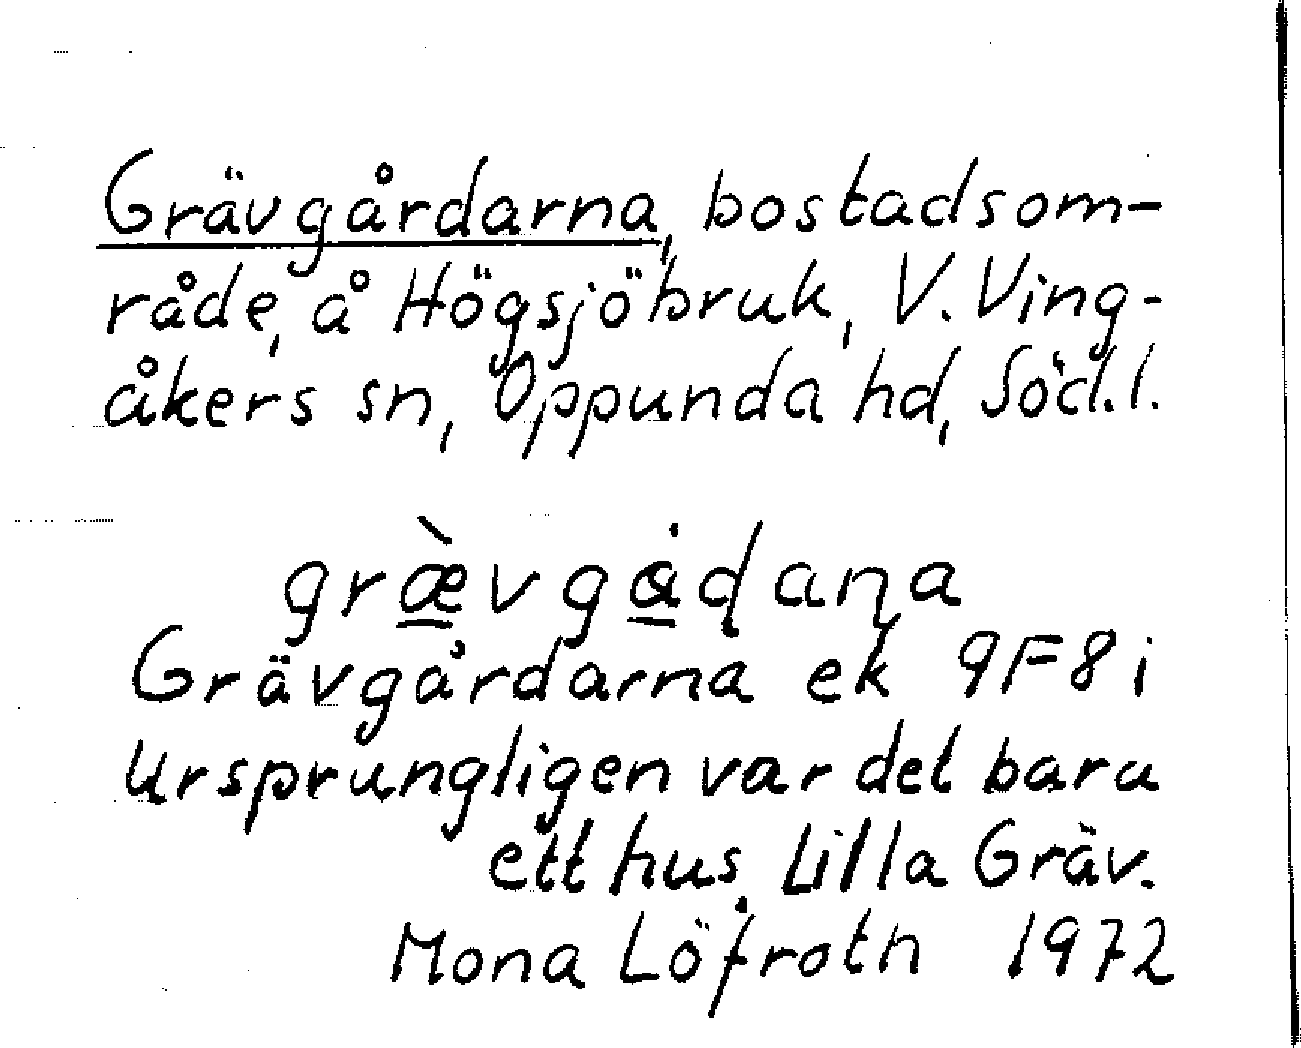 Grävgårdarna, bostadsom-
råde, å Högsjöbruk, V. Ving-
åkers sn, Oppunda hd, Söd.l.
græ̀vgådana
Grävgårdarna ek 9F8i
Ursprungligen var det bara
ett hus, Lilla Gräv.
Mona Löfroth 1972